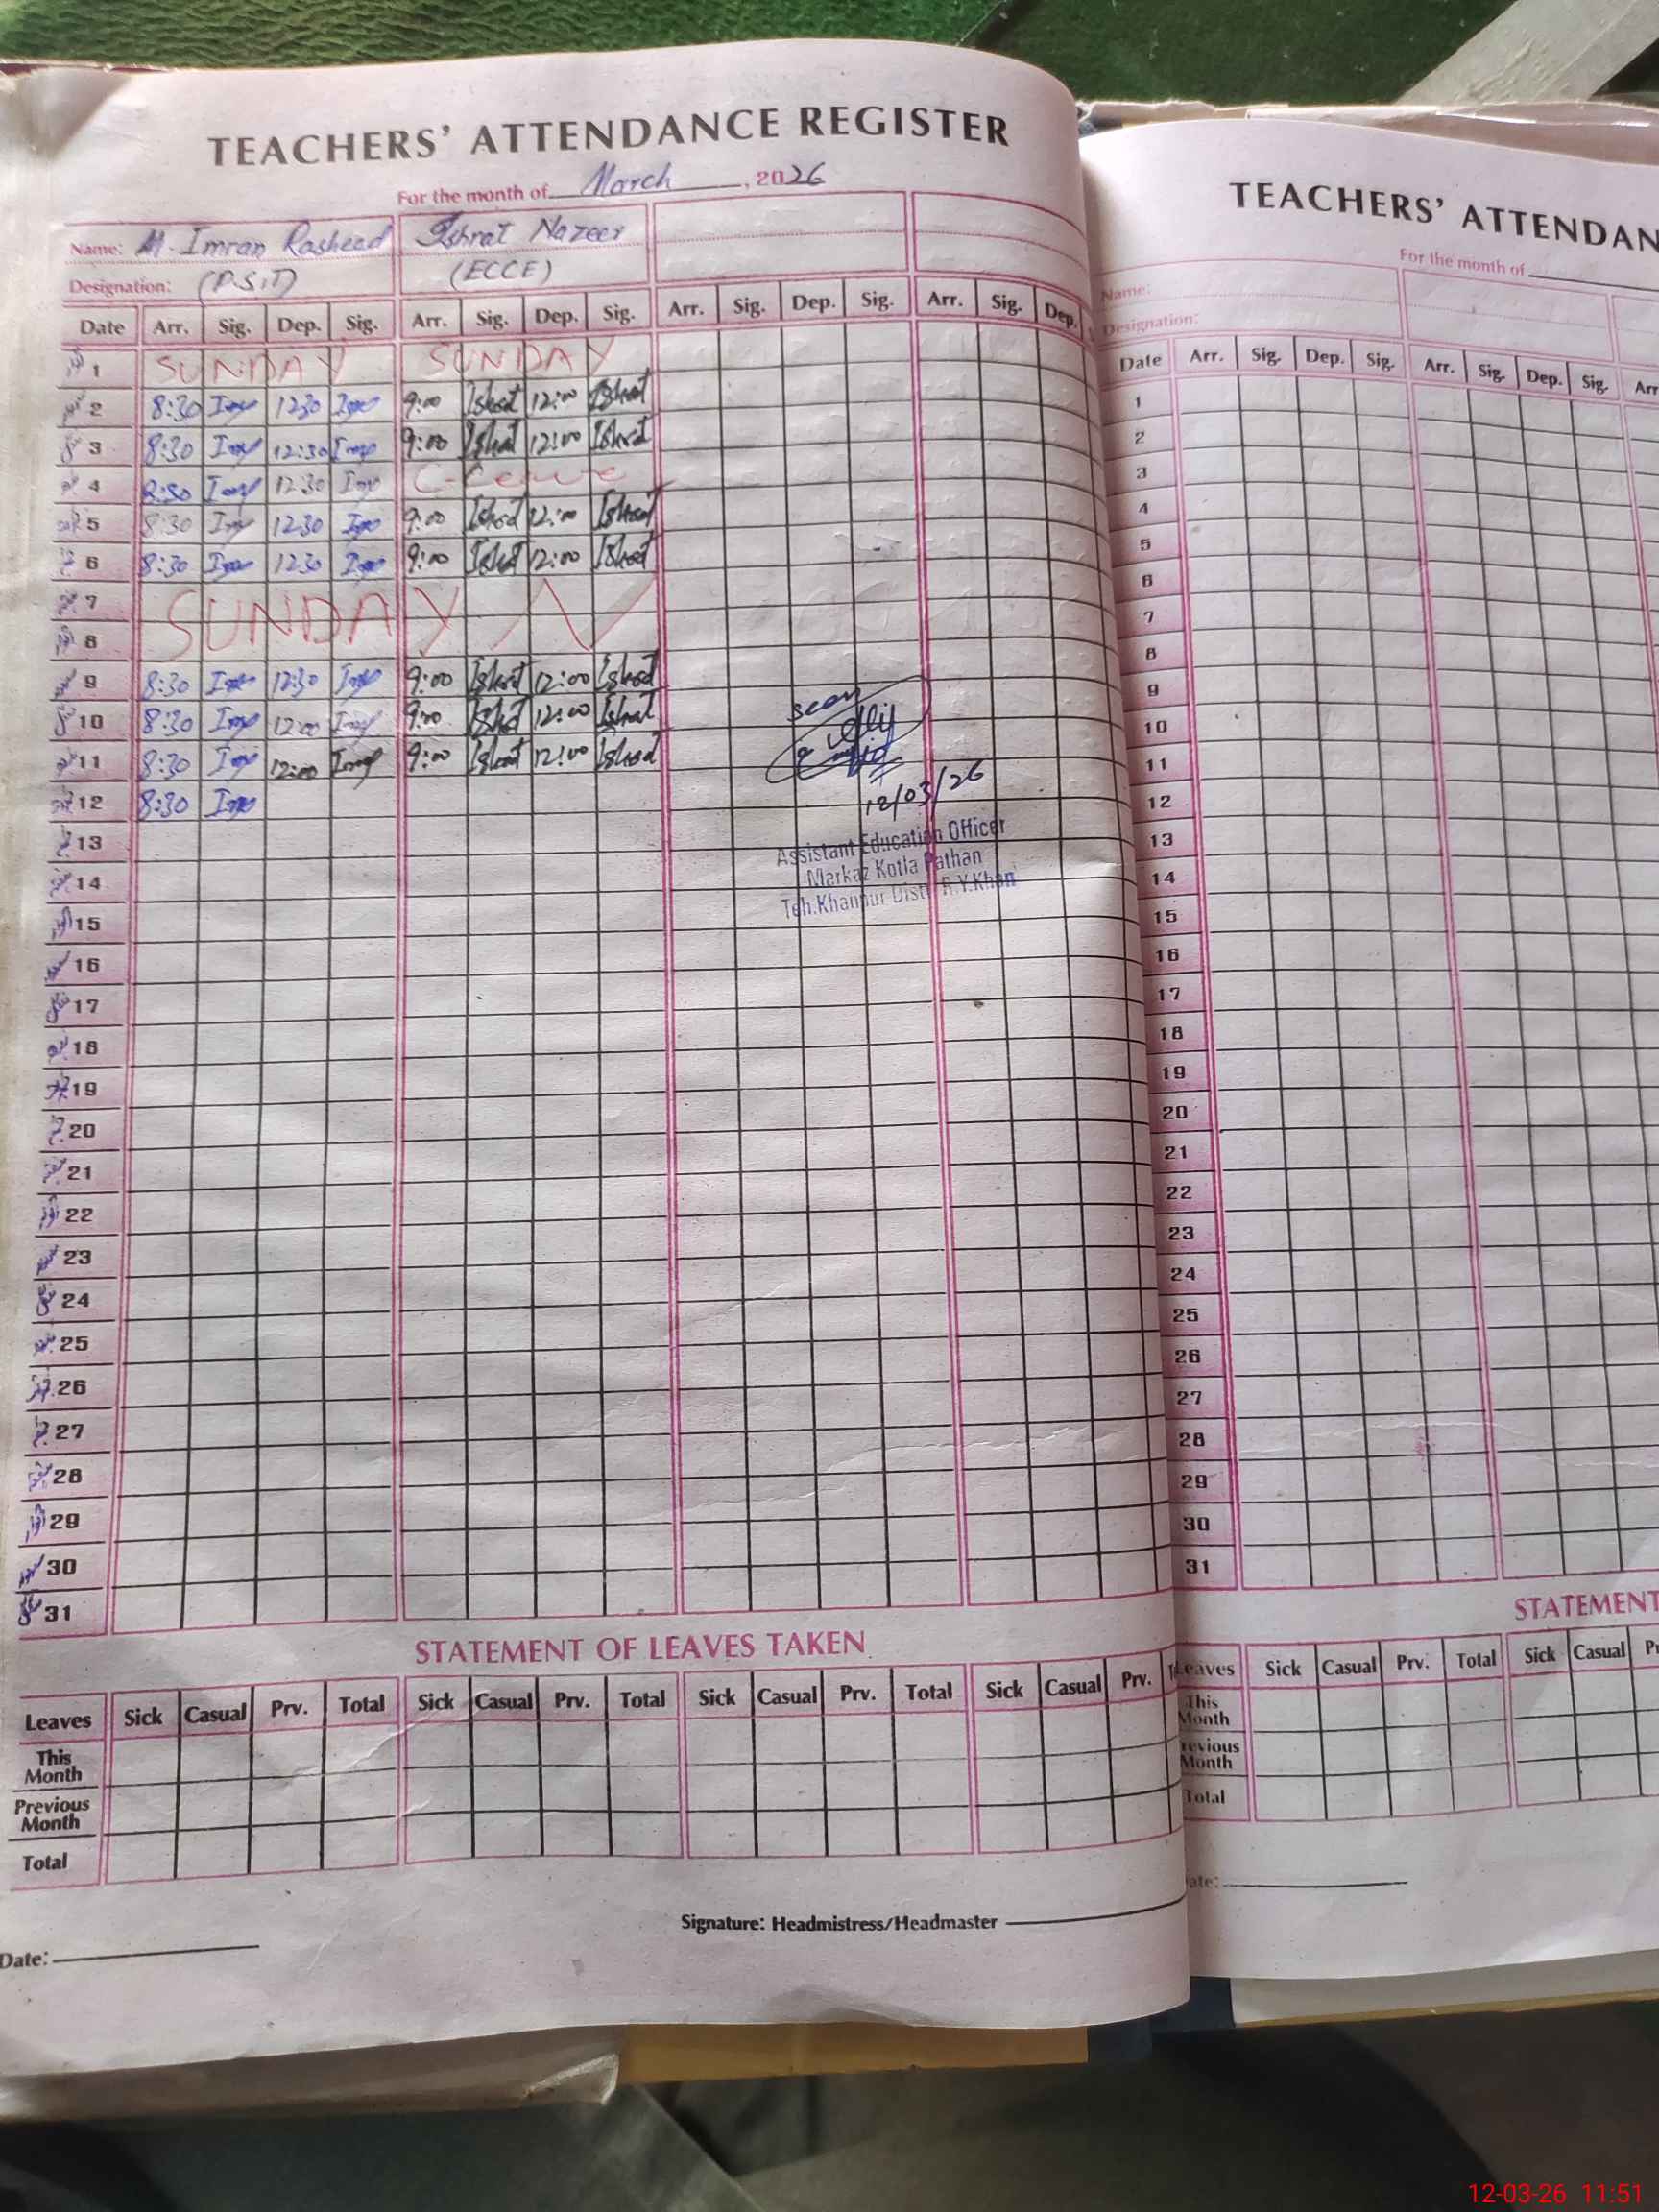 TEACHERS' ATTENDANCE REGISTER
For the month of March, 2026
Name: M. Imran Rasheed Ishrat Nazeer
Designation: (P.S.T) (ECCE)
Date Arr. Sig. Dep. Sig. Arr. Sig. Dep. Sig. Arr. Sig. Dep. Sig. Arr. Sig. Dep.
1 SUNDAY SUNDAY
2 8:30 1230 9:00 Ishrat 12:00 Ishrat
3 8:30 12:30 9:00 Ishrat 12:00 Ishrat
4 8:30 1230 C-leave
5 8:30 1230 9:00 Ishrat 12:00 Ishrat
6 8:30 1230 9:00 Ishrat 12:00 Ishrat
7 SUNDAY
8
9 8:30 12:30 9:00 Ishrat 12:00 Ishrat
10 8:30 12:00 9:00 Ishrat 12:00 Ishrat
11 8:30 12:00 9:00 Ishrat 12:00 Ishrat
12 8:30
12/03/26
Assistant Education Officer
Markaz Kotla Pathan
Teh.Khanpur Distt R.Y.Khan
13
14
15
16
17
18
19
20
21
22
23
24
25
26
27
28
29
30
31
STATEMENT OF LEAVES TAKEN
Leaves Sick Casual Prv. Total Sick Casual Prv. Total Sick Casual Prv. Total Sick Casual Prv.
This
Month
Previous
Month
Total
Signature: Headmistress/Headmaster
Date:
TEACHERS' ATTENDAN
For the month of
Name:
Designation:
Date Arr. Sig. Dep. Sig. Arr. Sig. Dep. Sig. Arr
1
2
3
4
5
6
7
8
9
10
11
12
13
14
15
16
17
18
19
20
21
22
23
24
25
26
27
28
29
30
31
STATEMENT
Leaves Sick Casual Prv. Total Sick Casual Pr
This
Month
revious
Month
Total
ate:
12-03-26 11:51